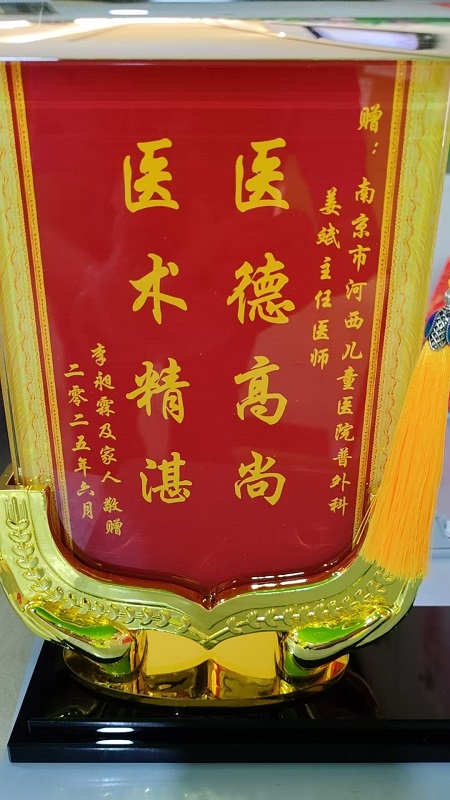 赠：
南京市河西儿童医院普外科
姜斌主任医师
医德高尚
医术精湛
李昶霖及家人 敬赠
二零二五年六月